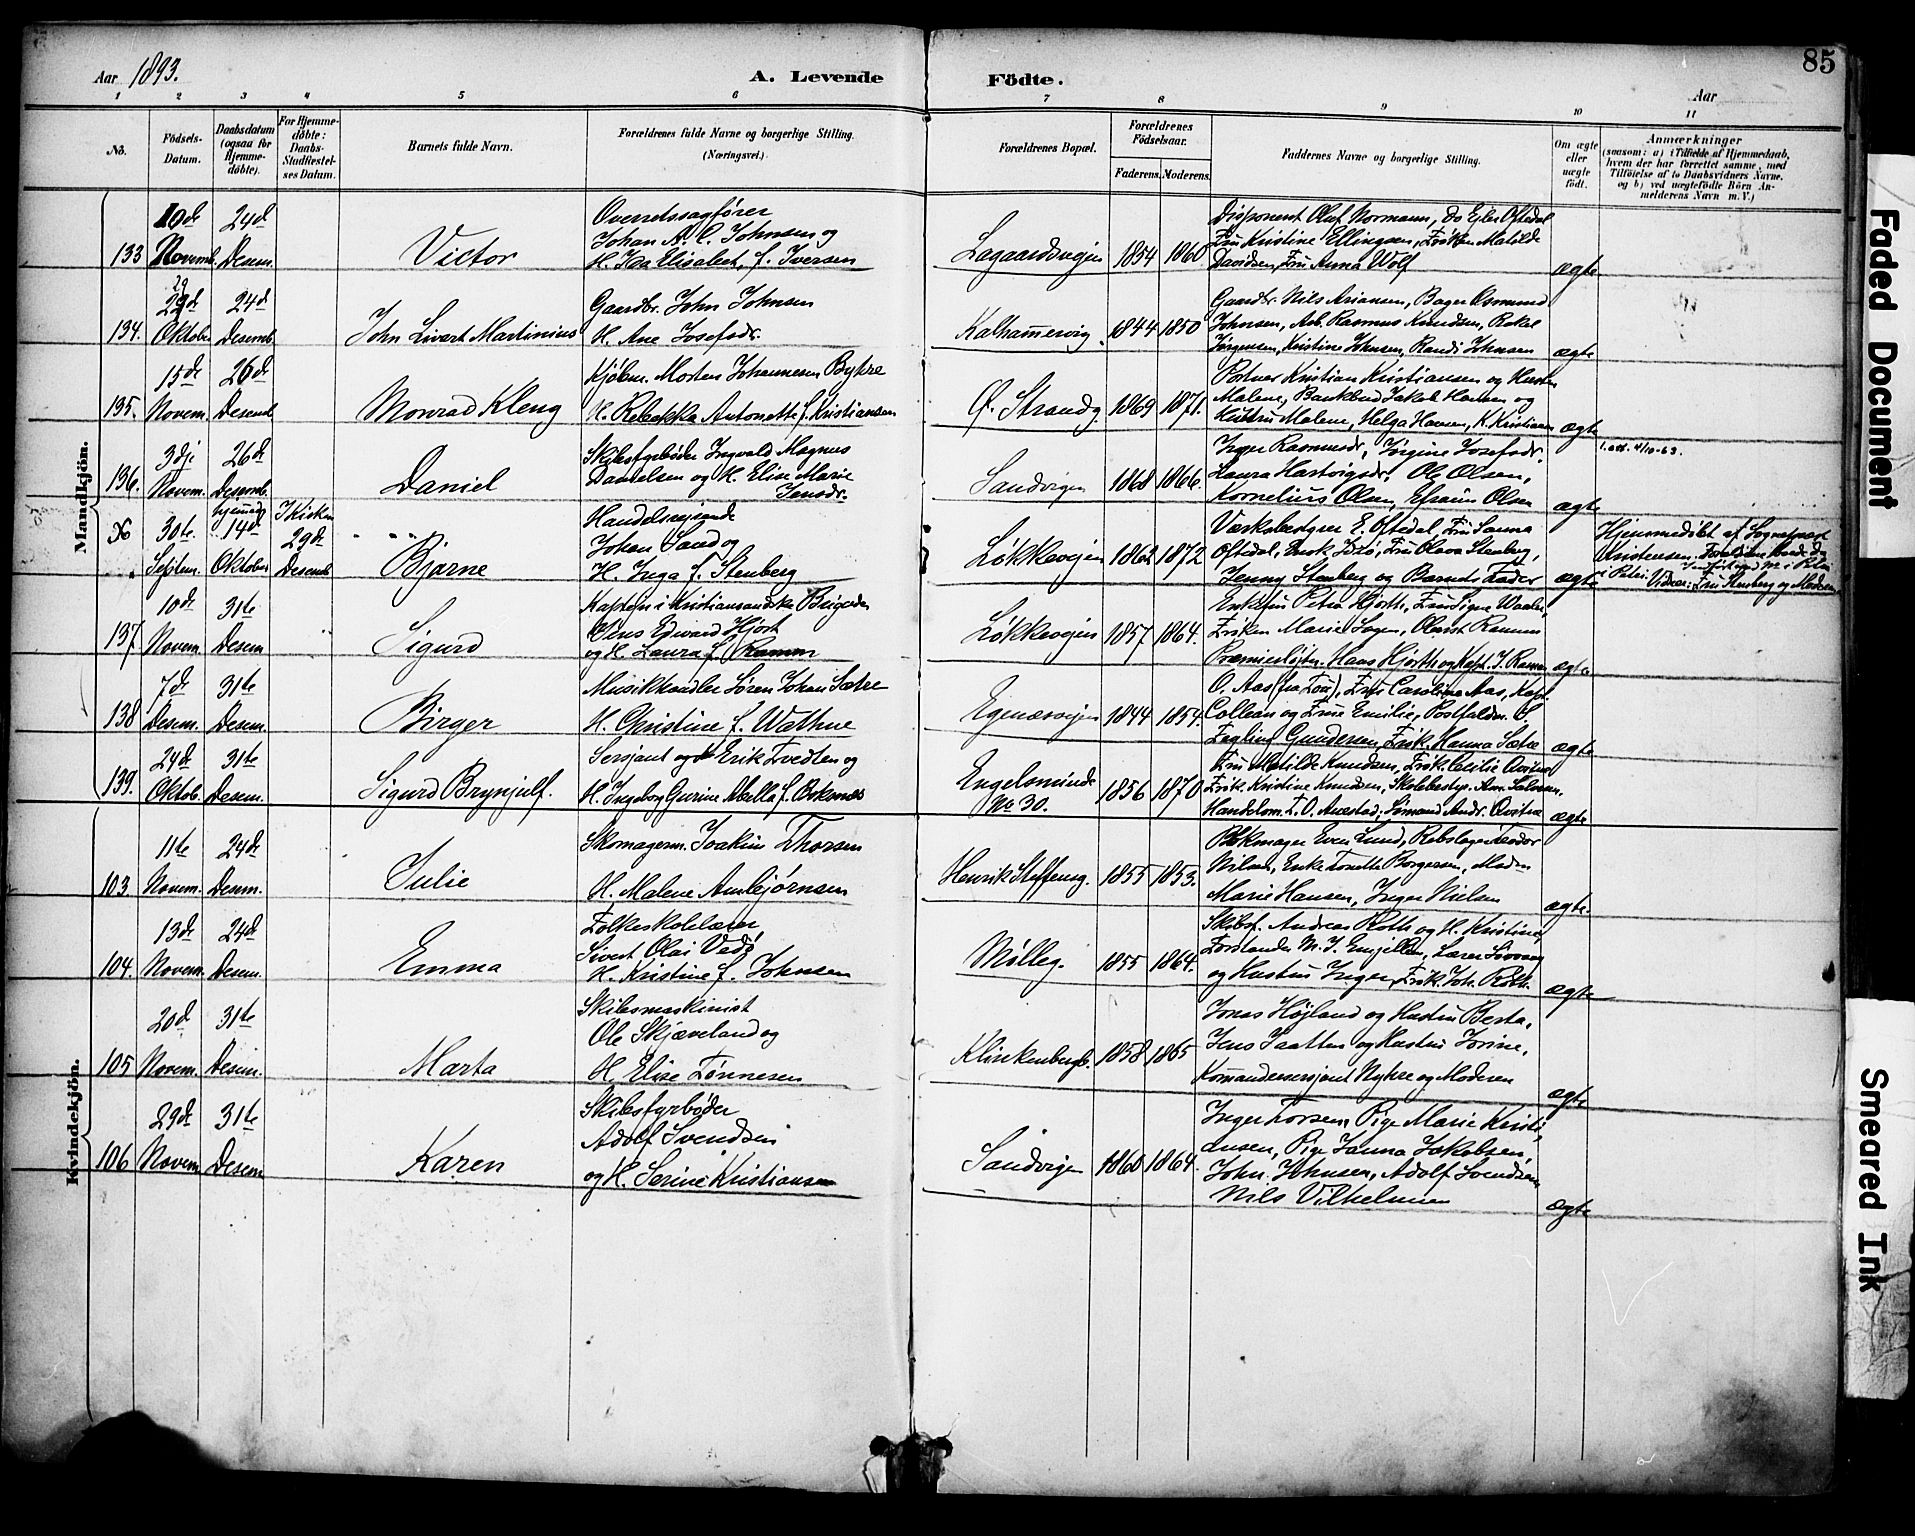 Aar 1893.
A. Levende Födte.
85
Aar
1 2 3 4 5 6 7 8 9 10 11
No.
Födsels-Datum.
Daabsdatum (ogsaa för Hjemme-döbte).
For Hjemme-döbte: Daabs-Stadfæstel-ses Datum.
Barnets fulde Navn.
Forældrenes fulde Navne og borgerlige Stilling.
(Næringsvei.)
Forældrenes Bopæl.
Forældrenes Födselsaar.
Faderens. Moderens.
Faddernes Navne og borgerlige Stilling.
Om ægte eller uægte födt.
Anmærkninger
(saasom: a) i Tilfælde af Hjemmedaab,
hvem der har forrettet samme, med
Tilföielse af to Daabsvidners Navne.
og b) ved uægtefödte Börn An-
melderens Navn m. V.)
Mandkjön.
133 10de Novemb. 24de Desem. Victor
Overretssagfører
Johan A. C. Johnsen og
H. Ida Elisabet, f. Iversen
Lagaardsvejen 1854 1860
Disponent Oluf Normann, do Ejler Oftedal
Fru Kristine Ellingsen, Frøken Matilde
Davidsen, Fru Anna Wolf
ægte
134. 29 Oktober 24de Desemb. John Sivert Martinius
Gaardbr. John Johnsen
H. Ane Josefsdr.
Kalhammervig. 1844 1850
Gaardbr. Nils Ariansen, Bager Osmund
Johnsen, Arb. Rasmus Knudsen, Bokel
Jørgensen, Kristine Johnsen, Randi Johnsen
ægte
135. 15de Novem. 26de Desemb. Monrad Kleng
Kjøbm. Morten Johannesen Bykre
H. Rebekka Antonette f. Kristiansen
Ø. Strandg. 1869 1871.
Portner Kristian Kristiansen og Hustru
Malene, Bankbud Jakob Hansen og
Hustru Malene, Helga Hansen, K. Kristiansen
ægte
136. 3dje Novem. 26de Desemb. Daniel
Skibsfyrbøder Ingvald Magnus
Danielsen og H. Elise Marie
Jensdr.
Sandvigen 1868 1866.
Inger Rasmusdr., Jørgine Josefsdr.
Laura Hartvigsdr., Ole Olsen,
Kornelius Olsen, Efraim Olsen
ægte
1. att. 4/10-63.
30te Septem. hjemme 14de Oktober I Kirken 29de Desemb. Bjarne
Handelsrejsende
Johan Sand og
H. Inga f. Stenberg
Løkkevejen 1863 1872
Værksbestyrer E. Oftedal, Fru Sanna
Oftedal, Fru Olava Stenberg,
Jenny Stenberg og Barnets Fader
ægte
Hjemmedøbt af Sogneprest
Kristensen.
i Petri. Vidner: Fru Stenberg og Moderen
137 10de Novem. 31te Desem. Sigurd
Kaptejn i Kristiansandske Brigade
Jens Edward Hjort
og H. Laura f. Ramm
Løkkevejen 1857 1864.
Enkefru Petra Hjorth, Fru Signe Waaler,
Frøken Marie Sagen, Oberst Ramm
Præmierløjtn. Hans Hjorth og Kapt. J. Ramm
ægte
138 7de Desem. 31te Desem. Birger
Musikhandler Søren Johan Sætre
H. Christine f. Wathne
Egenæsvejen 1844 1854.
O. Aas (fra Fou), Frue Caroline Aas, Kapt.
Collean og Frue Emilie, Postfuldm. C.
Gundersen, Frøk. Hanna Sætre
ægte
139. 29de Oktob. 31te Desem. Sigurd Brynjulf.
Sersjant Erik Tvedten og
H. Ingeborg Gurine Abella f. Orknes
Engelsminde
No 30. 1856 1870
Fru Matilde Knudsen, Frøk. Cecilie
Frøk. Kristine Knudsen, Skolebestyr. Am. Salvesen,
ægte
Kvindekjön.
103 11te Novem. 24de Desem. Julie
Skomagerm. Joakim Thorsen
H. Malene Ambjørnsen
Henrik Steffensg. 1855 1853.
Blokmager Even Lund, Rebslager Tendor
Nilsen, Enke Tonette Borgersen, Madm
Marie Hansen, Inger Nielsen
ægte.
104. 13de Novem. 24de Desem. Emma
Folkeskolelærer,
Sivert Olai Vadø
H. Kristine f. Johnsen
Mølleg. 1855 1864.
Skibsf. Andreas Roth og H. Kristine,
Forstander M. J. Lærer
og Hustru Inger, Frøk. Joh. Roth.
ægte
105 20de Novem. 31te Desem. Marta
Skibsmaskinist
Ole Skjæveland og
H. Elise Tønnesen
Klinkenbergb. 1858 1865
Jonas Højland og Hustru Berta,
Jens Taatten og Hustru Jorine,
Kommandersersjant Nykre og Moderen
ægte
106 29de Novem. 31te Desem Karen
Skibsfyrbøder
Adolf Svendsen
og H. Serine Kristiansen
Sandvigen 1860 1864.
Inger Torsen, Pige Marie Kristi-
ansen, Pige Janna Jakobsen,
John Johnsen, Adolf Svendsen,
Nils Vilhelmsen
ægte
Faded Document
Smeared Ink